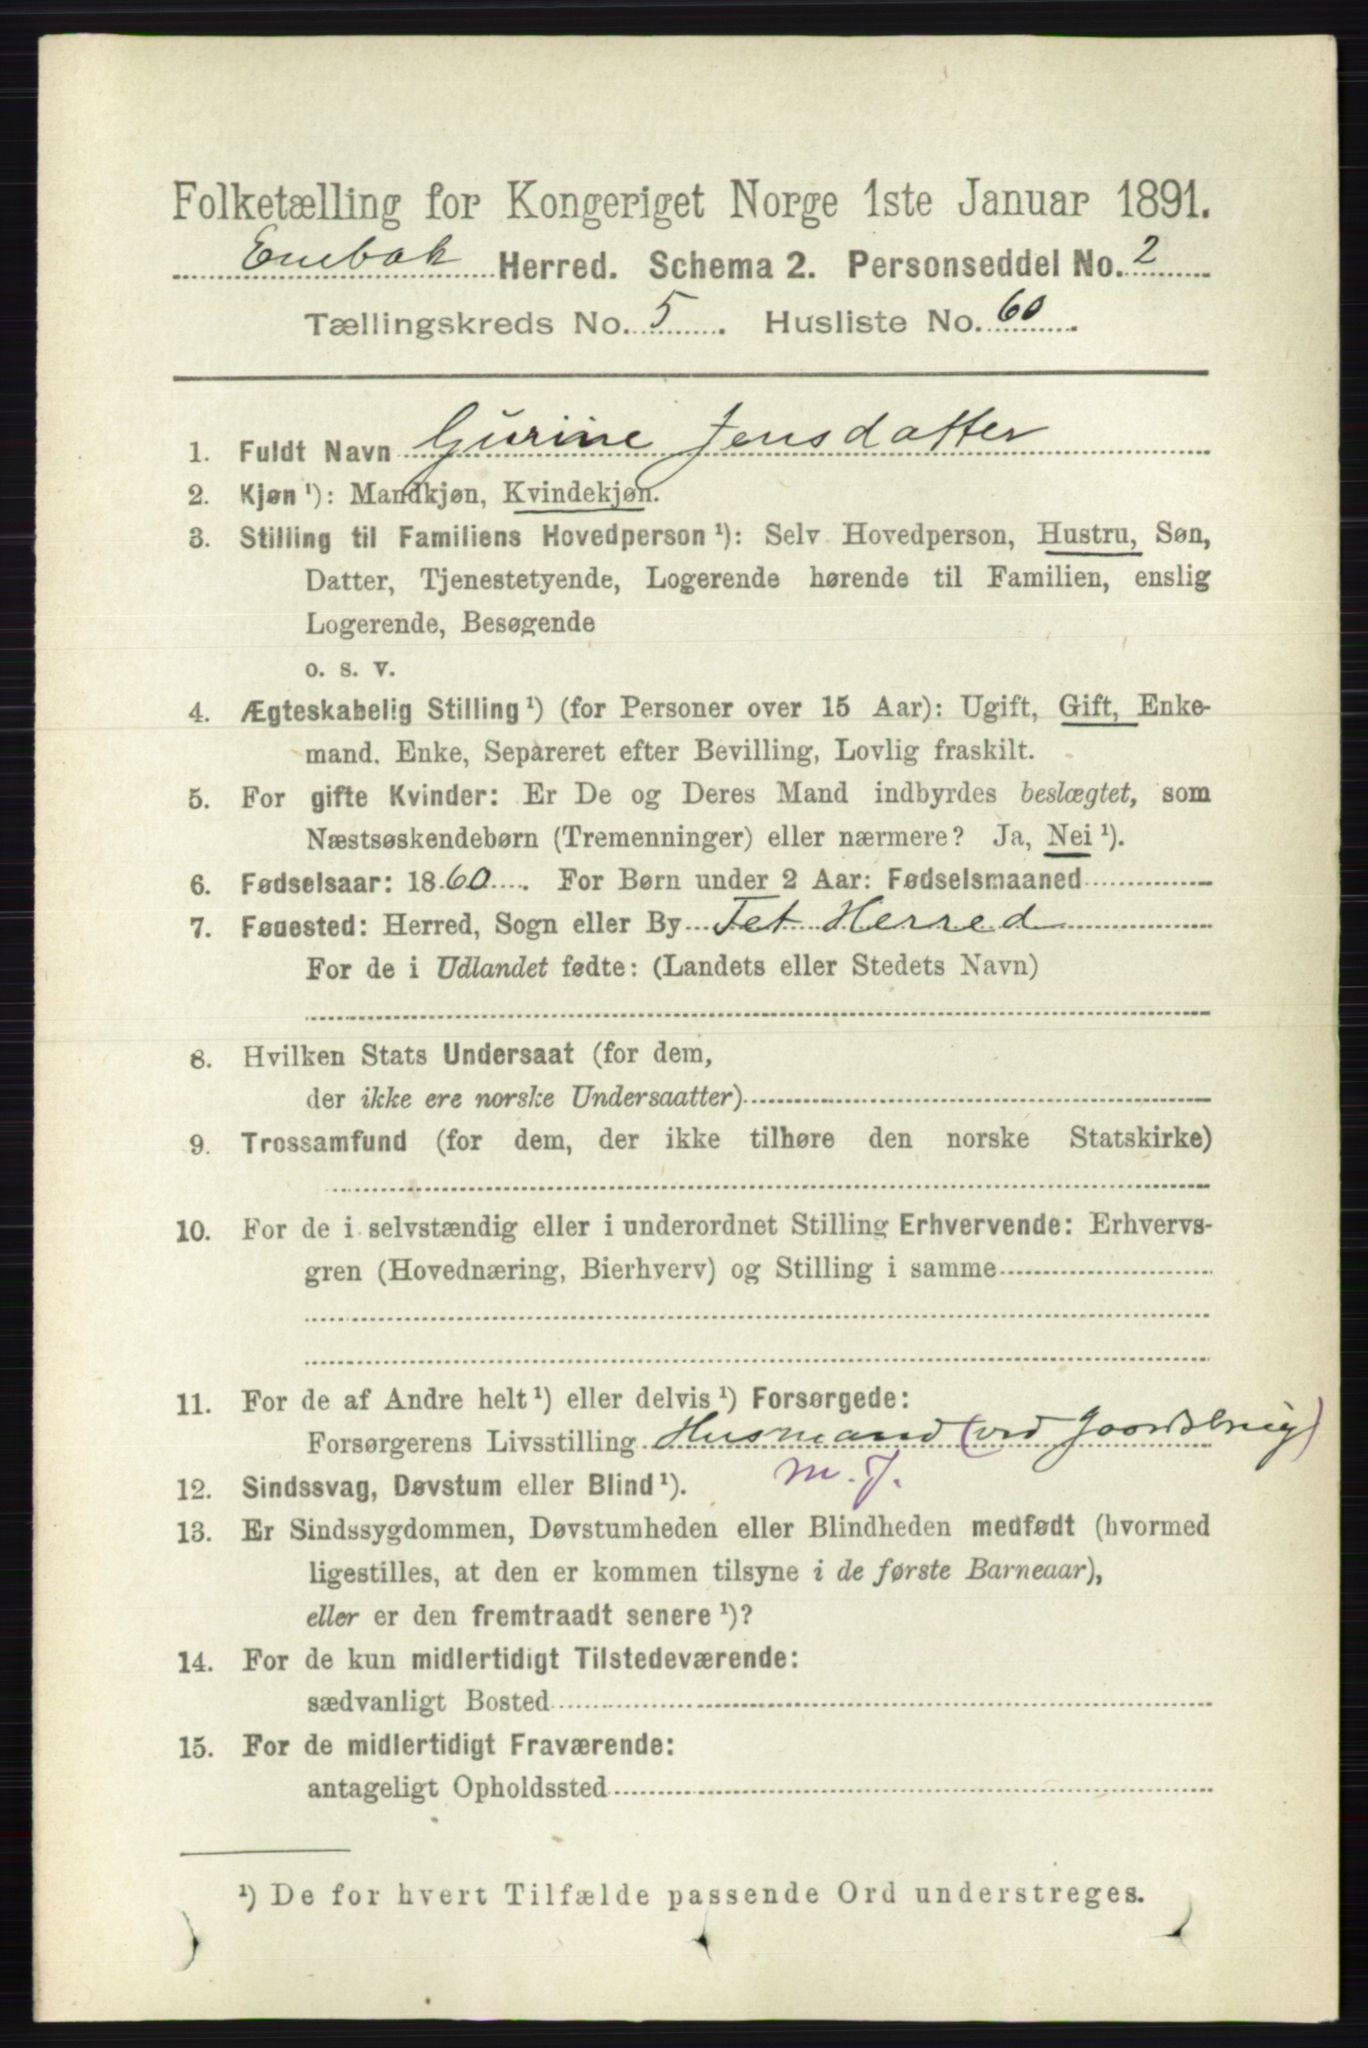 Folketælling for Kongeriget Norge 1ste Januar 1891.
Enebak Herred. Schema 2. Personseddel No. 2
Tællingskreds No. 5. Husliste No. 60.
1. Fuldt Navn Gurine Jensdatter
2. Kjøn ¹): Mandkjøn, Kvindekjøn.
3. Stilling til Familiens Hovedperson ¹): Selv Hovedperson, Hustru, Søn,
Datter, Tjenestetyende, Logerende hørende til Familien, enslig
Logerende, Besøgende
o. s. v.
4. Ægteskabelig Stilling ¹) (for Personer over 15 Aar): Ugift, Gift, Enke-
mand. Enke, Separeret efter Bevilling, Lovlig fraskilt.
5. For gifte Kvinder: Er De og Deres Mand indbyrdes beslægtet, som
Næstsøskendebørn (Tremenninger) eller nærmere? Ja, Nei ¹).
6. Fødselsaar: 1860. For Børn under 2 Aar: Fødselsmaaned
7. Føuested: Herred, Sogn eller By Fet Herred
For de i Udlandet fødte: (Landets eller Stedets Navn)
8. Hvilken Stats Undersaat (for dem,
der ikke ere norske Undersaatter)
9. Trossamfund (for dem, der ikke tilhøre den norske Statskirke)
10. For de i selvstændig eller i underordnet Stilling Erhvervende: Erhvervs-
gren (Hovednæring, Bierhverv) og Stilling i samme
11. For de af Andre helt ¹) eller delvis ¹) Forsørgede:
Forsørgerens Livsstilling Husmand (ved Gaardsbrug)
12. Sindssvag, Døvstum eller Blind ¹). m. J.
13. Er Sindssygdommen, Døvstumheden eller Blindheden medfødt (hvormed
ligestilles, at den er kommen tilsyne i de første Barneaar),
eller er den fremtraadt senere ¹)?
14. For de kun midlertidigt Tilstedeværende:
sædvanligt Bosted
15. For de midlertidigt Fraværende:
antageligt Opholdssted
¹) De for hvert Tilfælde passende Ord understreges.